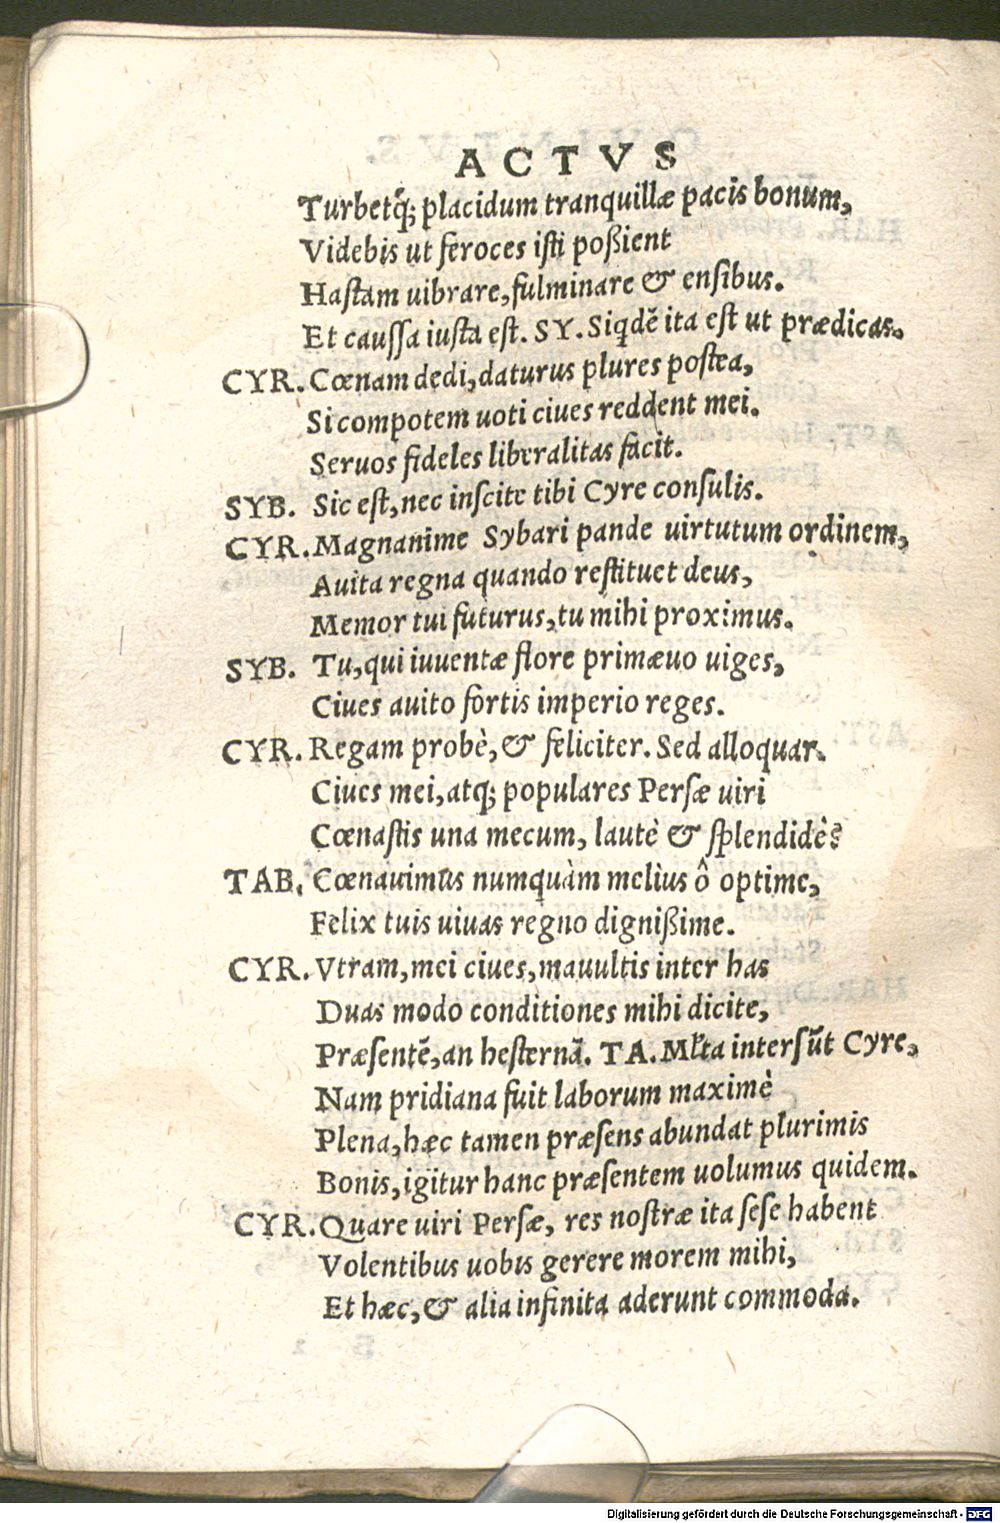 ACTVS
Turbetq̃; placidum tranquillæ pacis bonum,
Videbis ut feroces isti poßient
Hastam uibrare, fulminare & ensibus.
Et caussa iusta est. SY. Siqdẽ ita est ut prædicas.
CYR. Cœnam dedi, daturus plures postea,
Si compotem uoti ciues reddent mei.
Seruos fideles liberalitas facit.
SYB. Sic est, nec inscite tibi Cyre consulis.
CYR. Magnanime Sybari pande uirtutum ordinem,
Auita regna quando restituet deus,
Memor tui futurus, tu mihi proximus.
SYB. Tu, qui iuuentæ flore primæuo uiges,
Ciues auito fortis imperio reges.
CYR. Regam probè, & feliciter. Sed alloquar.
Ciues mei, atq; populares Persæ uiri
Cœnastis una mecum, lautè & splendidè?
TAB. Cœnauimus numquàm meliùs ô optime,
Felix tuis uiuas regno dignißime.
CYR. Vtram, mei ciues, mauultis inter has
Duas modo conditiones mihi dicite,
Præsentẽ, an hesternã. TA. Ml̃ta intersũt Cyre,
Nam pridiana fuit laborum maximè
Plena, hæc tamen præsens abundat plurimis
Bonis, igitur hanc præsentem uolumus quidem.
CYR. Quare uiri Persæ, res nostræ ita sese habent
Volentibus uobis gerere morem mihi,
Et hæc, & alia infinita aderunt commoda.
Digitalisierung gefördert durch die Deutsche Forschungsgemeinschaft - DFG